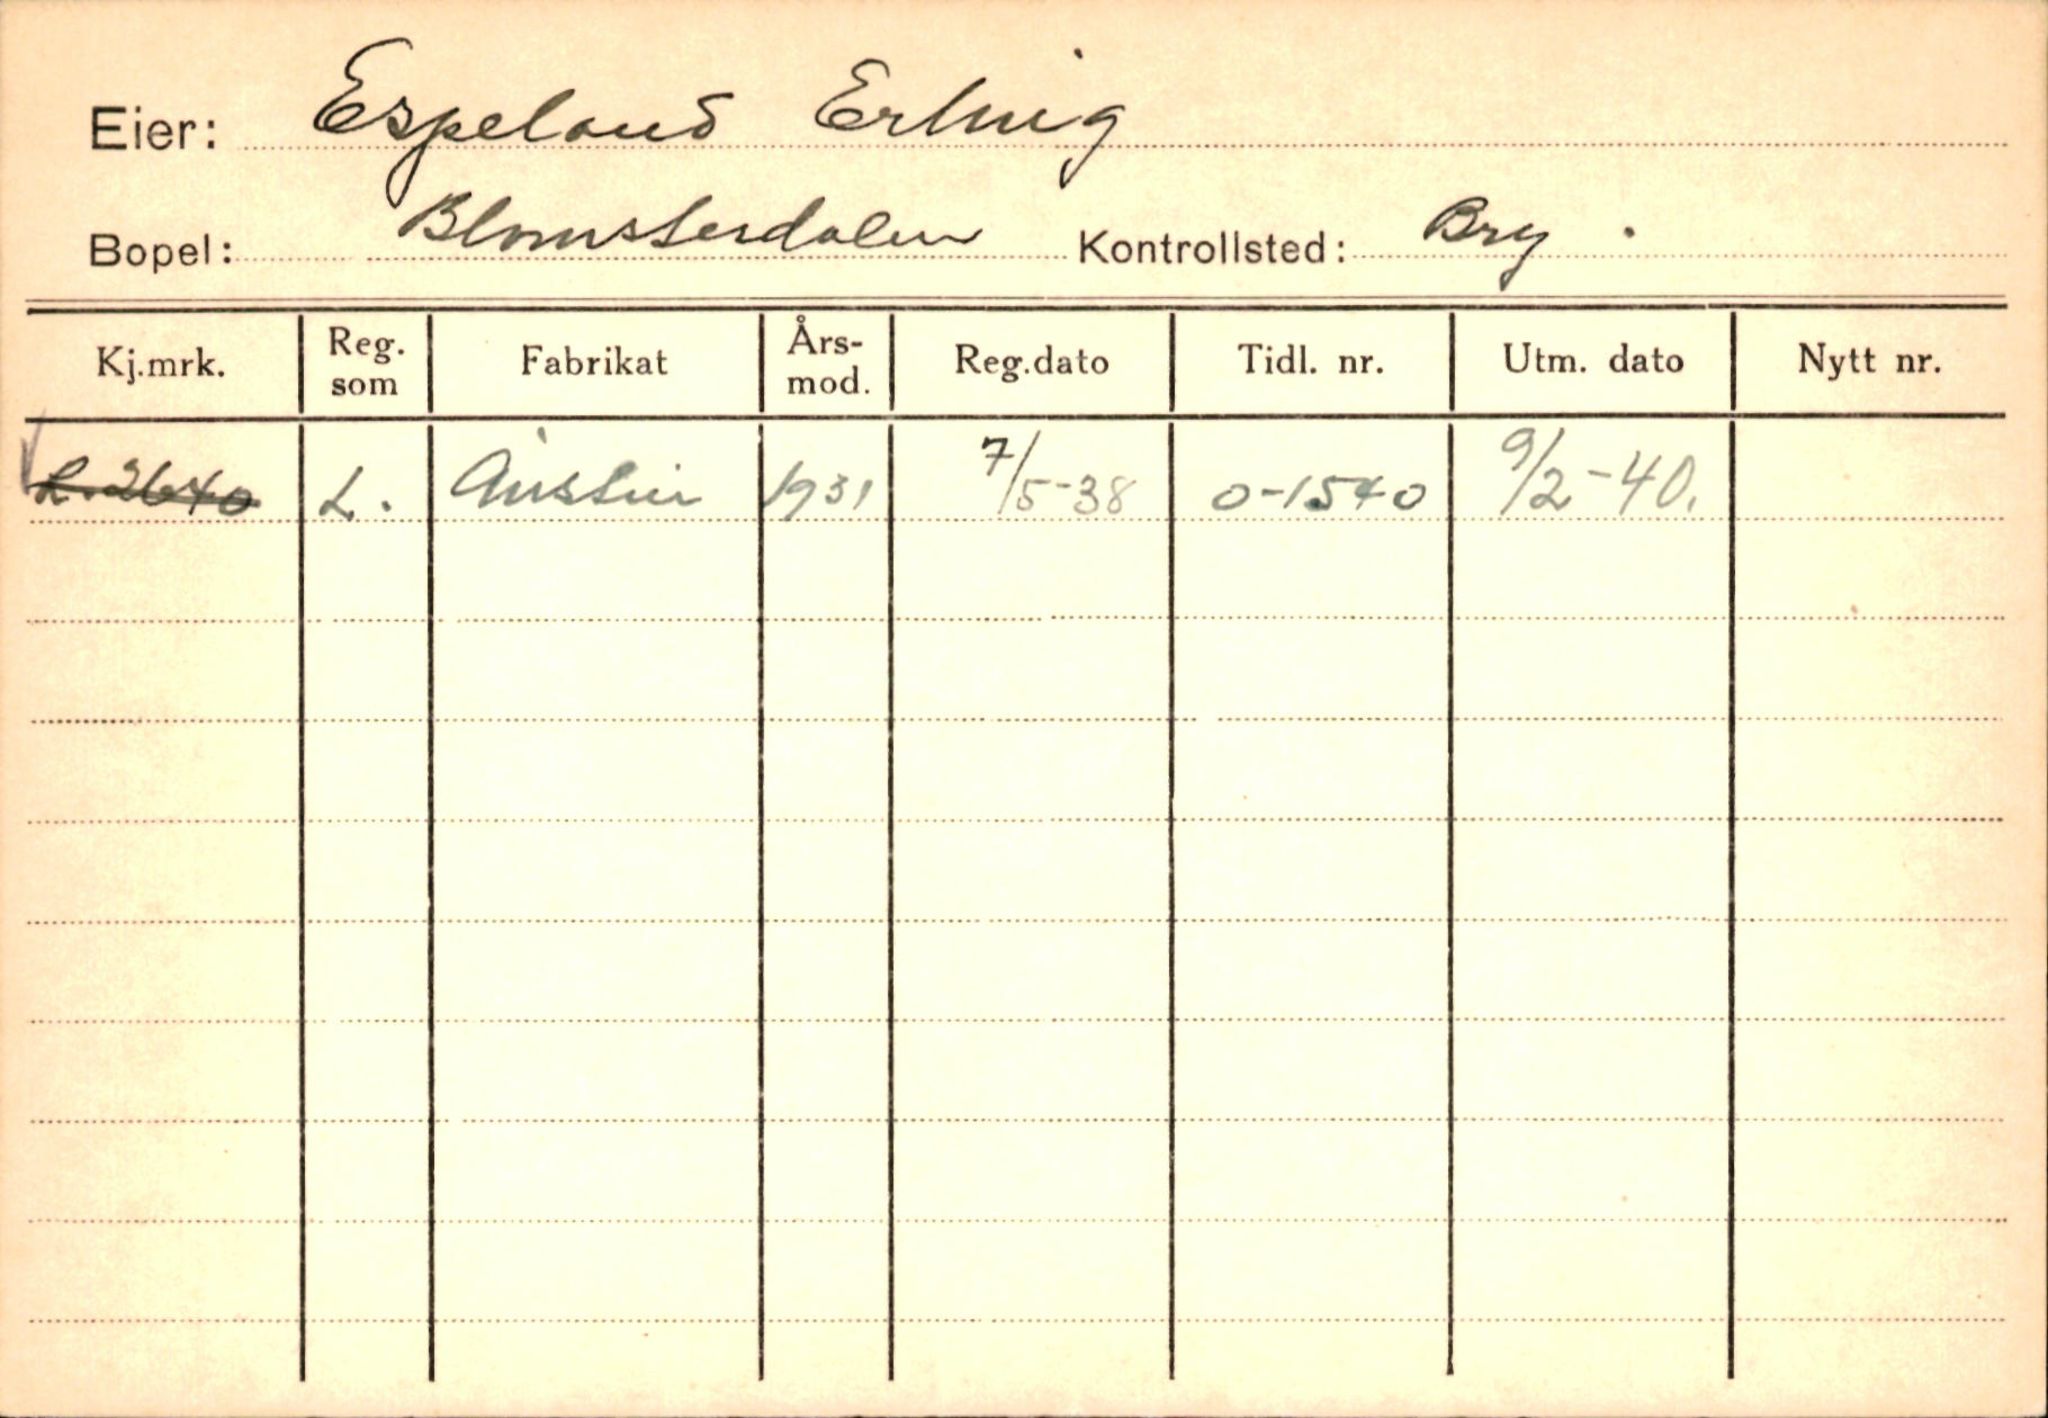 Eier: Espeland Erling
Bopel: Blomsterdalen Kontrollsted: Brg.
Kj.mrk. Reg. som Fabrikat Års-mod. Reg.dato Tidl. nr. Utm. dato Nytt nr.
L. 2640 L. Austin 1931 7/5-38 O-1540 9/2-40.